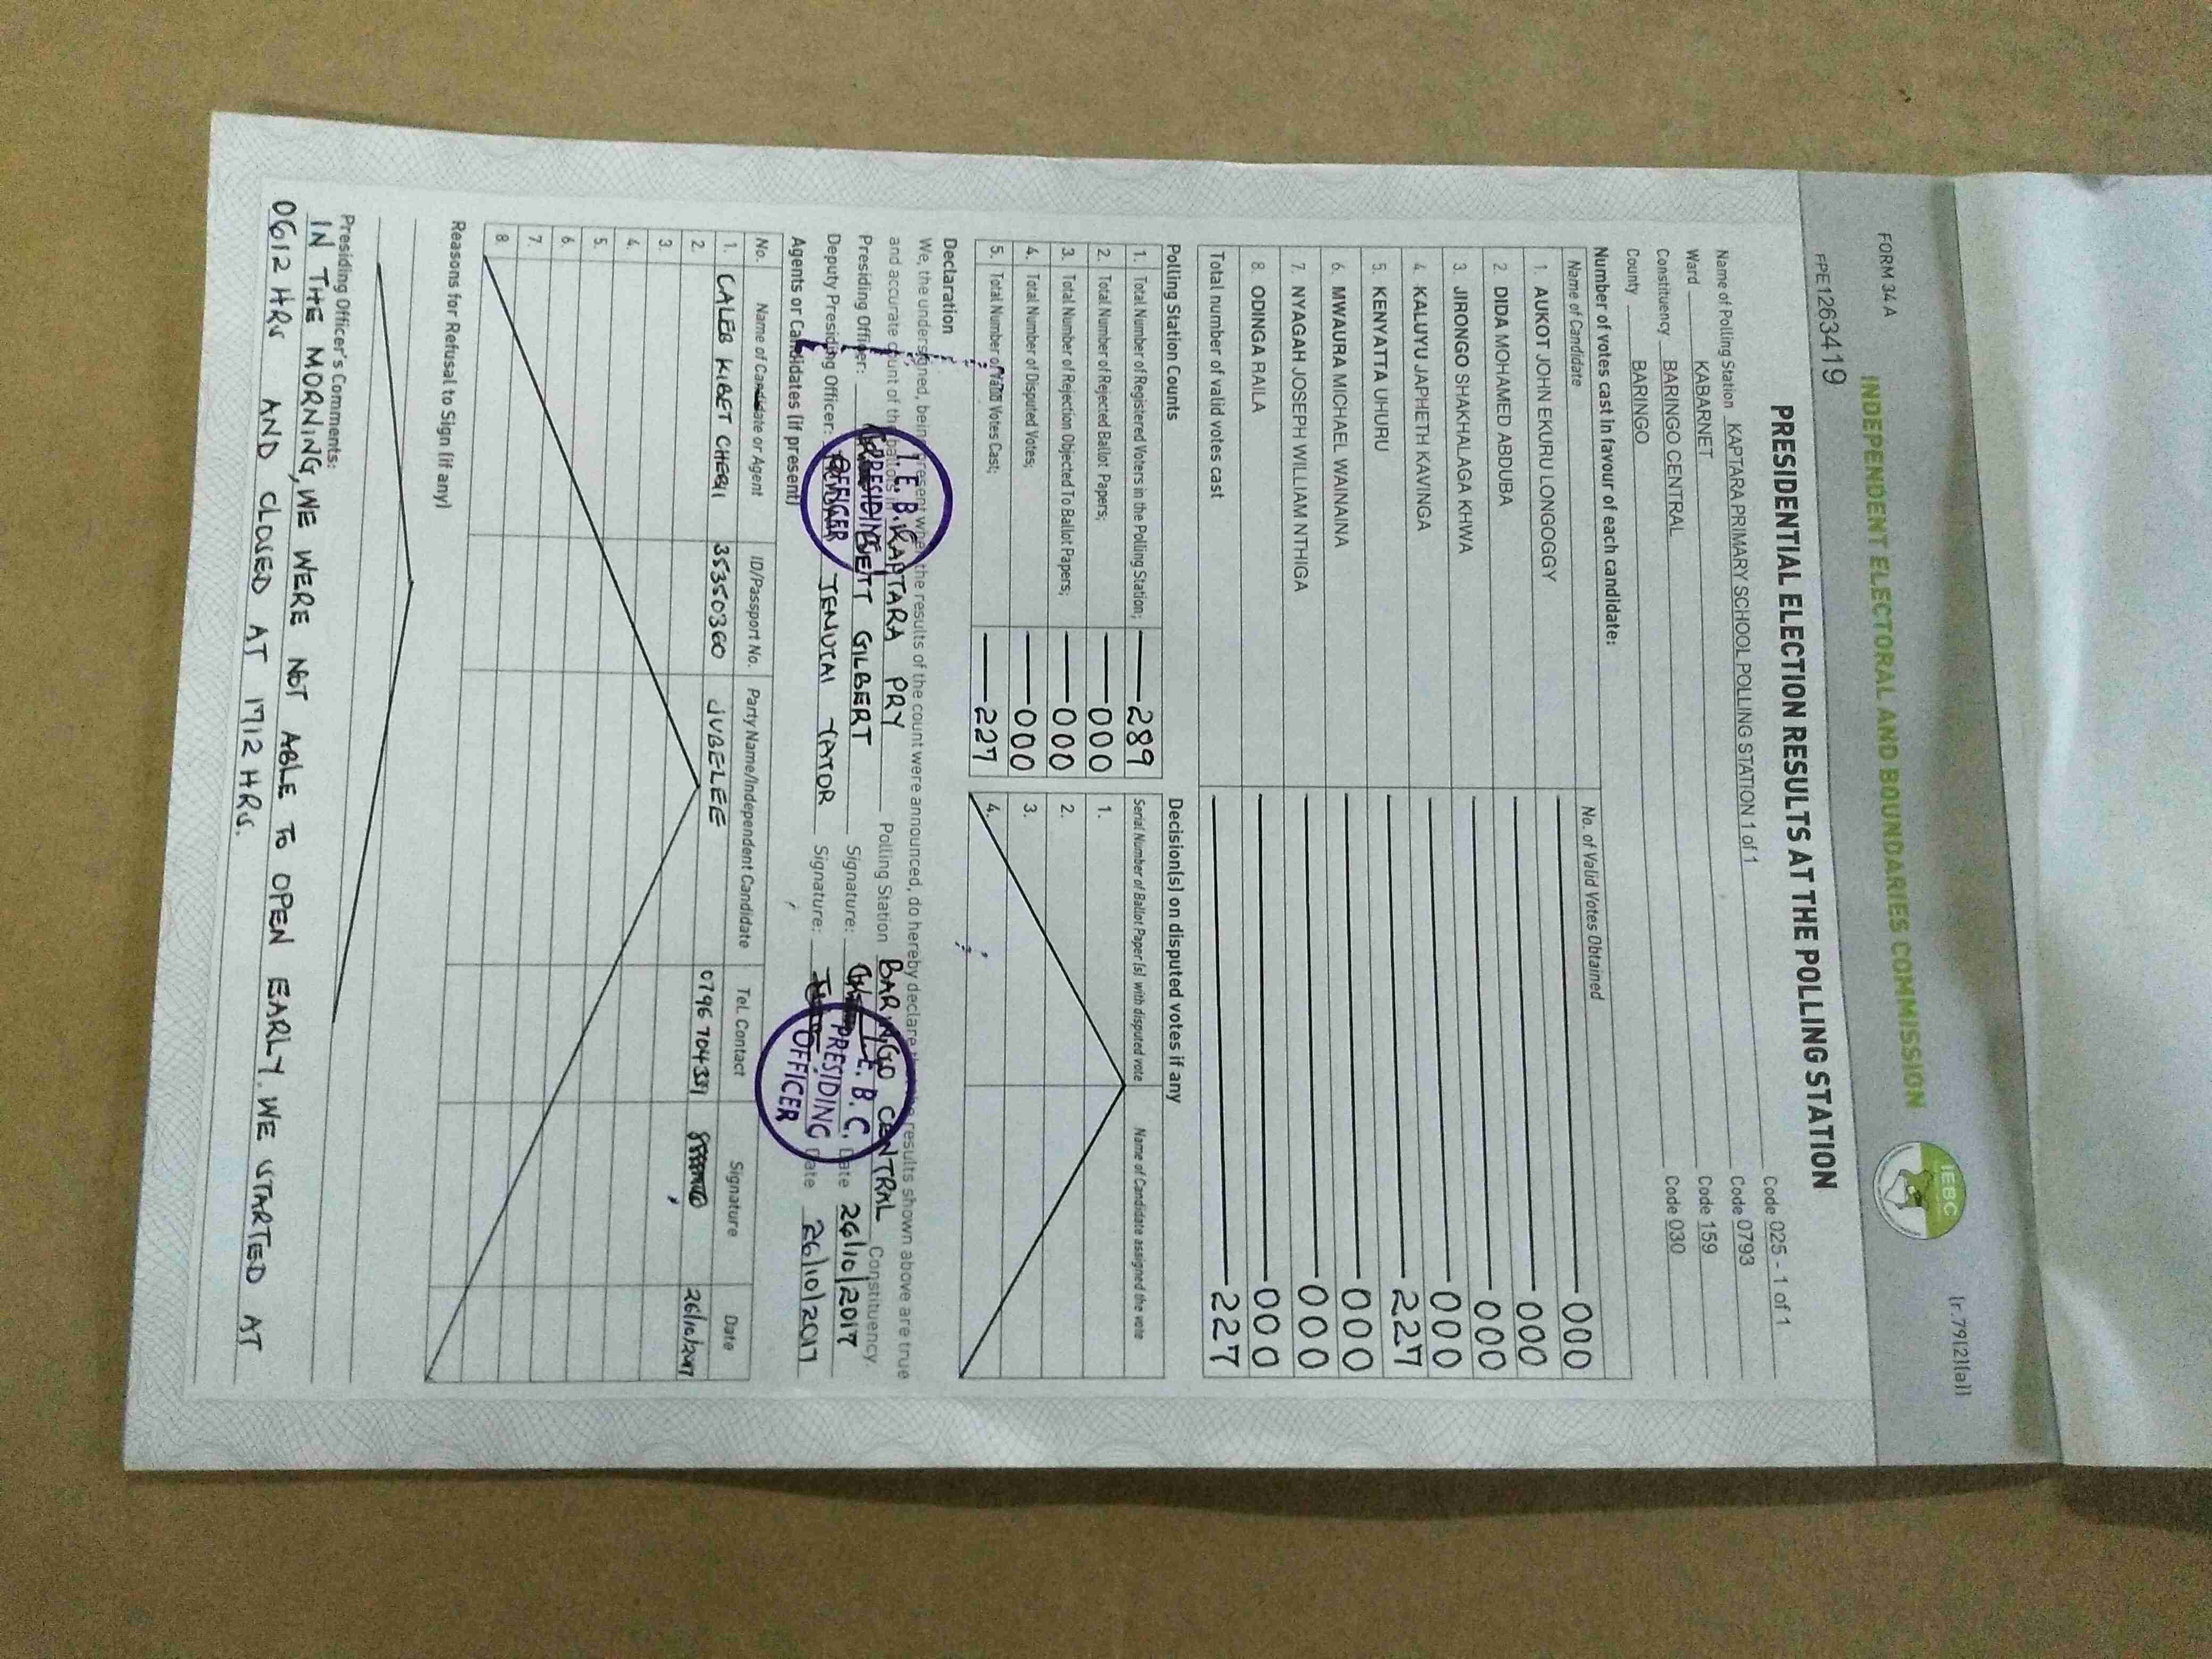 FORM 34A
(r.79(2)(a))
INDEPENDENT ELECTORAL AND BOUNDARIES COMMISSION
IEBC
FPE1263419
PRESIDENTIAL ELECTION RESULTS AT THE POLLING STATION
Name of Polling Station KAPTARA PRIMARY SCHOOL POLLING STATION 1 of 1 Code 025 - 1 of 1
Ward KABARNET Code 0793
Constituency BARINGO CENTRAL Code 159
County BARINGO Code 030
Number of votes cast in favour of each candidate:
Name of Candidate No. of Valid Votes Obtained
1. AUKOT JOHN EKURU LONGOGGY 000
2. DIDA MOHAMED ABDUBA 000
3. JIRONGO SHAKHALAGA KHWA 000
4. KALUYU JAPHETH KAVINGA 000
5. KENYATTA UHURU 227
6. MWAURA MICHAEL WAINAINA 000
7. NYAGAH JOSEPH WILLIAM NTHIGA 000
8. ODINGA RAILA 000
Total number of valid votes cast 227
Polling Station Counts
1. Total Number of Registered Voters in the Polling Station; 289
2. Total Number of Rejected Ballot Papers; 000
3. Total Number of Rejection Objected To Ballot Papers; 000
4. Total Number of Disputed Votes; 000
5. Total Number of Valid Votes Cast; 227
Decision(s) on disputed votes if any
Serial Number of Ballot Paper (s) with disputed vote Name of Candidate assigned the vote
1.
2.
3.
4.
Declaration
We, the undersigned, being present when the results of the count were announced, do hereby declare that the results shown above are true
and accurate count of the ballots in KAPTARA PRY Polling Station BARINGO CENTRAL Constituency
Presiding Officer: BETT GILBERT Signature: Date 26/10/2017
Deputy Presiding Officer: JENUTAI TATOR Signature: Date 26/10/2017
I.E.B.C.
PRESIDING
OFFICER
I.E.B.C.
PRESIDING
OFFICER
Agents or Candidates (if present)
No. Name of Candidate or Agent ID/Passport No. Party Name/Independent Candidate Tel. Contact Signature Date
1. CALEB KIBET CHEBII 35350360 JUBELEE 0796704331 26/10/2017
2.
3.
4.
5.
6.
7.
8.
Reasons for Refusal to Sign (if any)
Presiding Officer's Comments:
IN THE MORNING, WE WERE NOT ABLE TO OPEN EARLY. WE STARTED AT
0612 HRS AND CLOSED AT 1712 HRS.